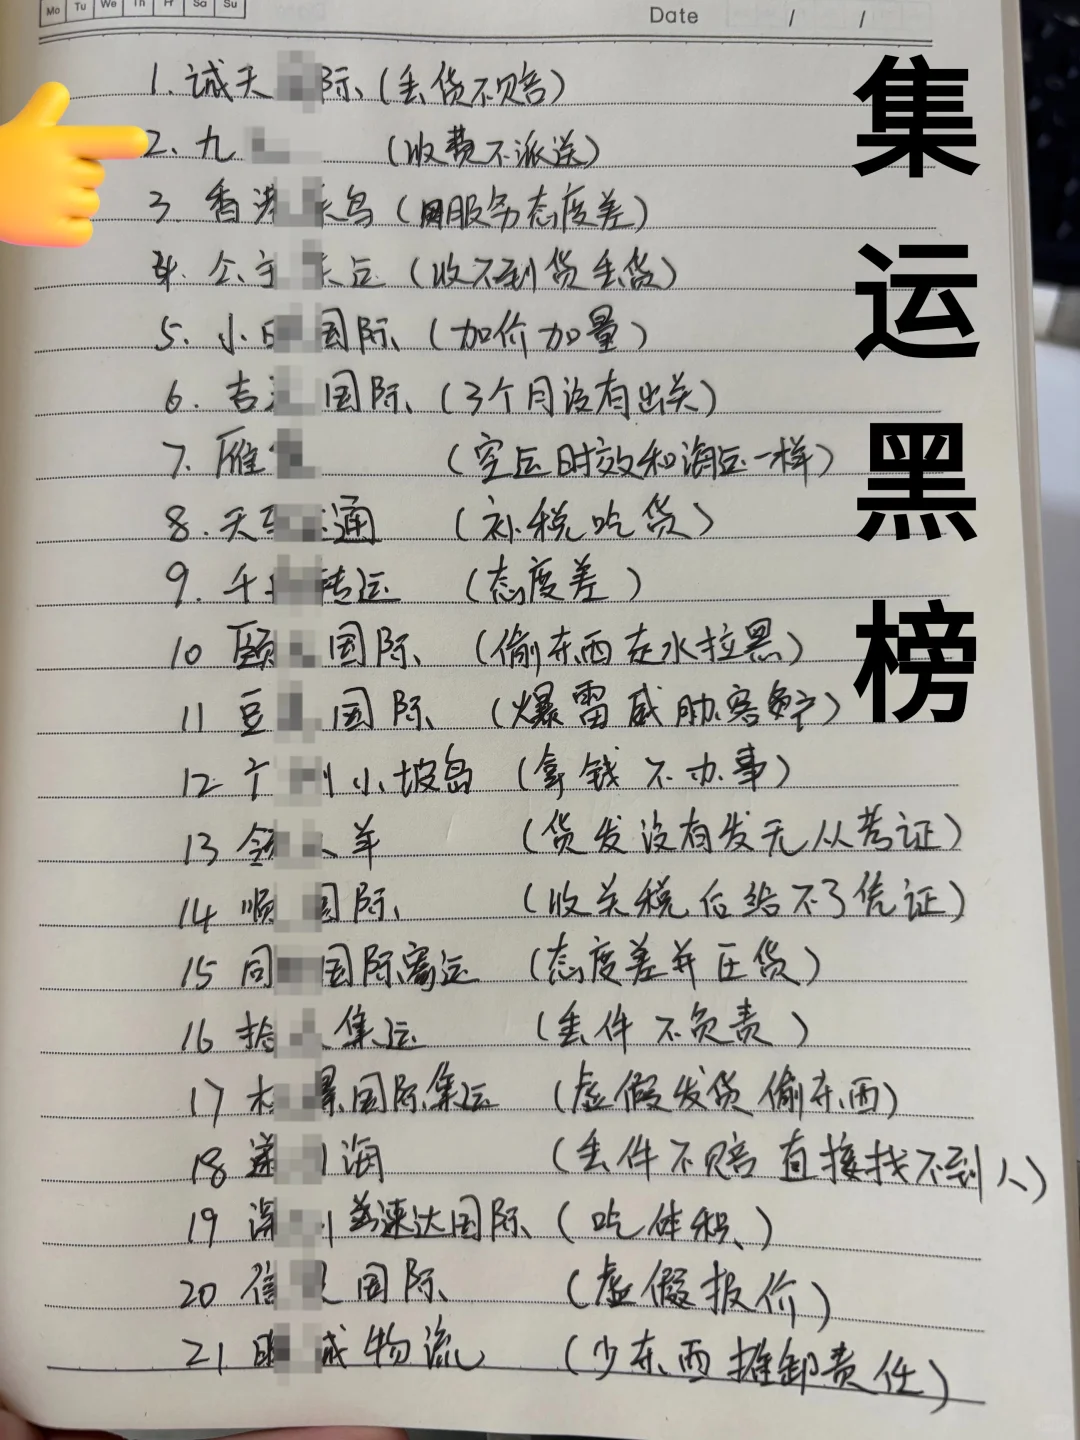 Mo Tu We Th Fr Sa Su
Date / /
集运黑榜
1. 诚天 际 (丢货不赔)
2. 九 (收费不派送)
3. 香港 鸟 (服务态度差)
4. (收不到货丢货)
5. 小 国际 (加价加量)
6. 吉 国际 (3个月没有出关)
7. 雁 (空运时效和海运一样)
8. 天 通 (补税吃货)
9. 千 转运 (态度差)
10 颐 国际 (偷东西走水拉黑)
11 豆 国际 (爆雷威胁客户)
12 小坡岛 (拿钱不办事)
13 羊 (货发没有发无从考证)
14 顺 国际 (收关税后给不了凭证)
15 同 国际寄运 (态度差并压货)
16 拾 集运 (丢件不负责)
17 国际集运 (虚假发货偷东西)
18 海 (丢件不赔直接找不到人)
19 速达国际 (吃体积)
20 信 国际 (虚假报价)
21 成物流 (少东西推卸责任)